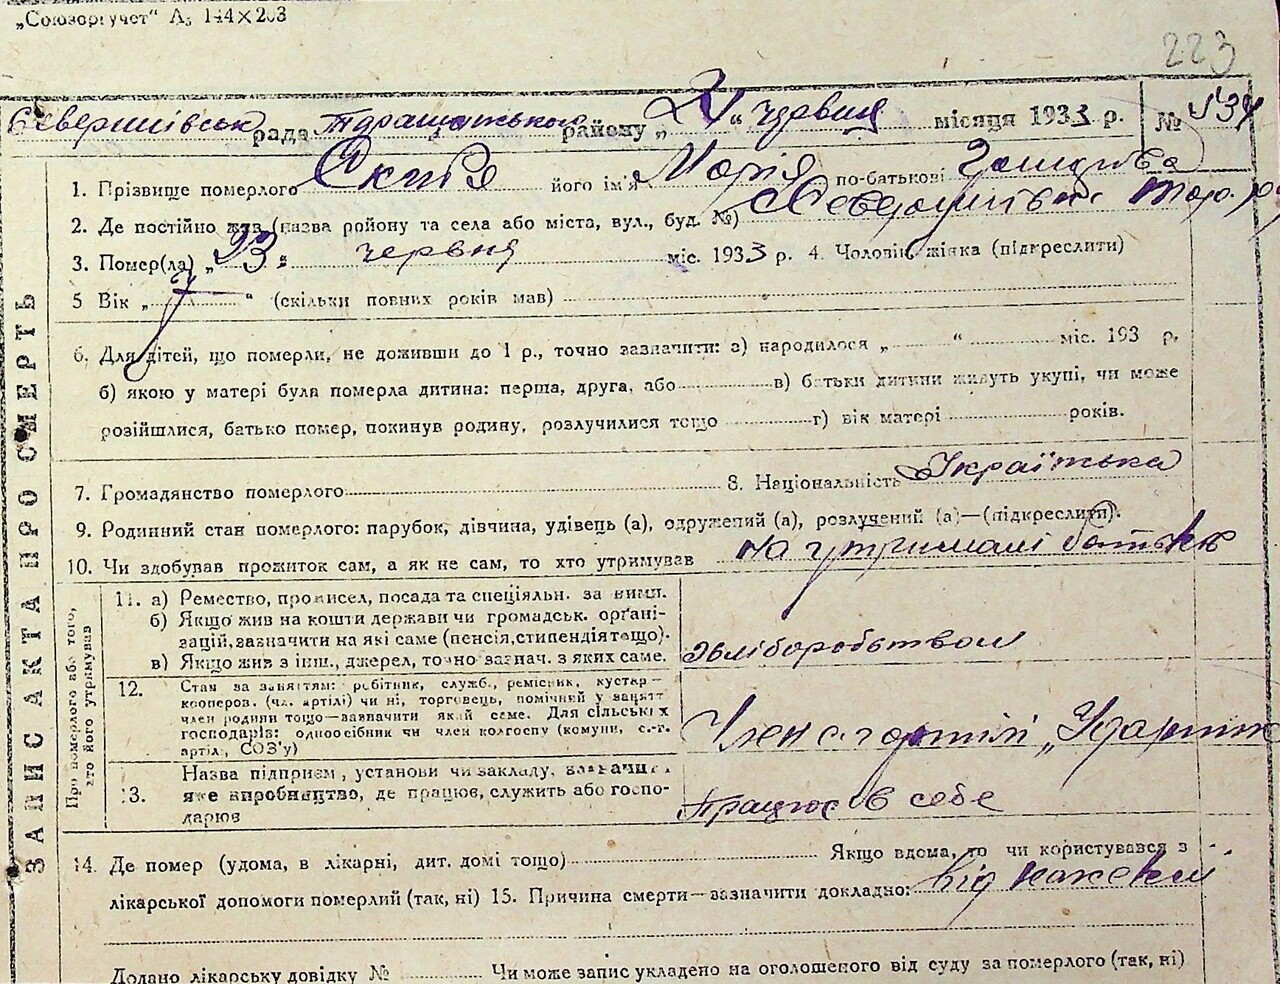 „Союзоргучет“ А5 144×203
223
Северинівськ рада Таращанського району „ “ червня місяця 1933 р. №
1. Прізвище померлого його ім'я Марія по-батькові
2. Де постійно жив (назва ройону та села або міста, вул., буд. №)
3. Помер(ла) „23“ червня міс. 1933 р. 4. Чоловік, жінка (підкреслити)
5 Вік „ “ (скільки повних років мав)
6. Для дітей, що померли, не доживши до 1 р., точно зазначити: а) народилося „ “ міс. 193 р.
б) якою у матері була померла дитина: перша, друга, або в) батьки дитини живуть укупі, чи може
розійшлися, батько помер, покинув родину, розлучилися тощо г) вік матері років.
7. Громадянство померлого 8. Національність Українська
9. Родинний стан померлого: парубок, дівчина, удівець (а), одружений (а), розлучений (а)—(підкреслити).
10. Чи здобував прожиток сам, а як не сам, то хто утримував на утримані батьків
ЗАПИС АКТА ПРО СМЕРТЬ
Про померлого або того, хто його утримував
11. а) Ремество, промисел, посада та спеціяльн. за ними.
б) Якщо жив на кошти держави чи громадськ. орґані-
зацій, зазначити на які саме (пенсія, стипендія тощо).
в) Якщо жив з інш., джерел, точно зазнач. з яких саме.
12. Стан за заняттям: робітник, служб., ремісник, кустар—
кооперов. (чл. артілі) чи ні, торговець, помічний у занятт
член родини тощо—зазначити який саме. Для сільських
господарів: одноосібник чи член колгоспу (комуни, с.-г.
артіл., СОЗ'у)
Член с. г артілі „Ударник
13. Назва підприєм., установи чи закладу, зазначит.
яке виробництво, де працює, служить або госпо-
дарює
Працює в себе
14. Де помер (удома, в лікарні, дит. домі тощо) Якщо вдома, то чи користувався з
лікарської допомоги померлий (так, ні) 15. Причина смерти—зазначити докладно: від
Додано лікарську довідку № Чи може запис укладено на оголошеного від суду за померлого (так, ні)